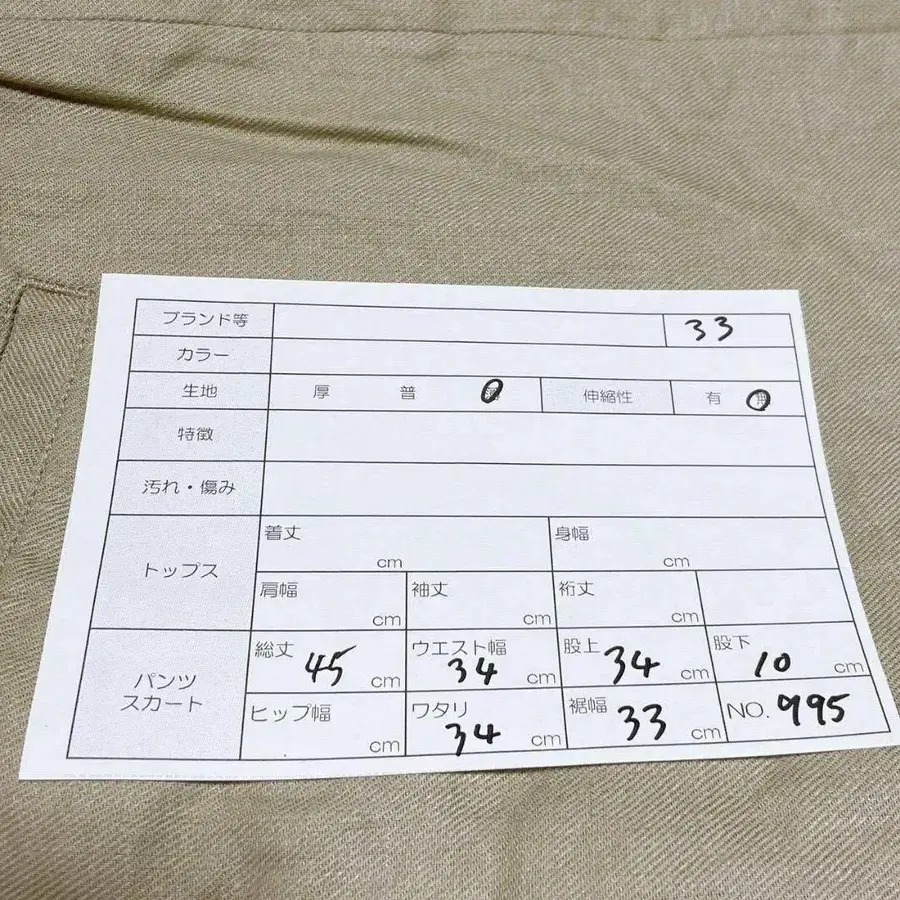 ブランド等 33
カラー
生地 厚 普 伸縮性 有
特徴
汚れ・傷み
トップス
着丈 cm 身幅 cm
肩幅 cm 袖丈 cm 裄丈 cm
パンツ
スカート
総丈 45 cm ウエスト幅 34 cm 股上 34 cm 股下 10 cm
ヒップ幅 cm ワタリ 34 cm 裾幅 33 cm NO. 995